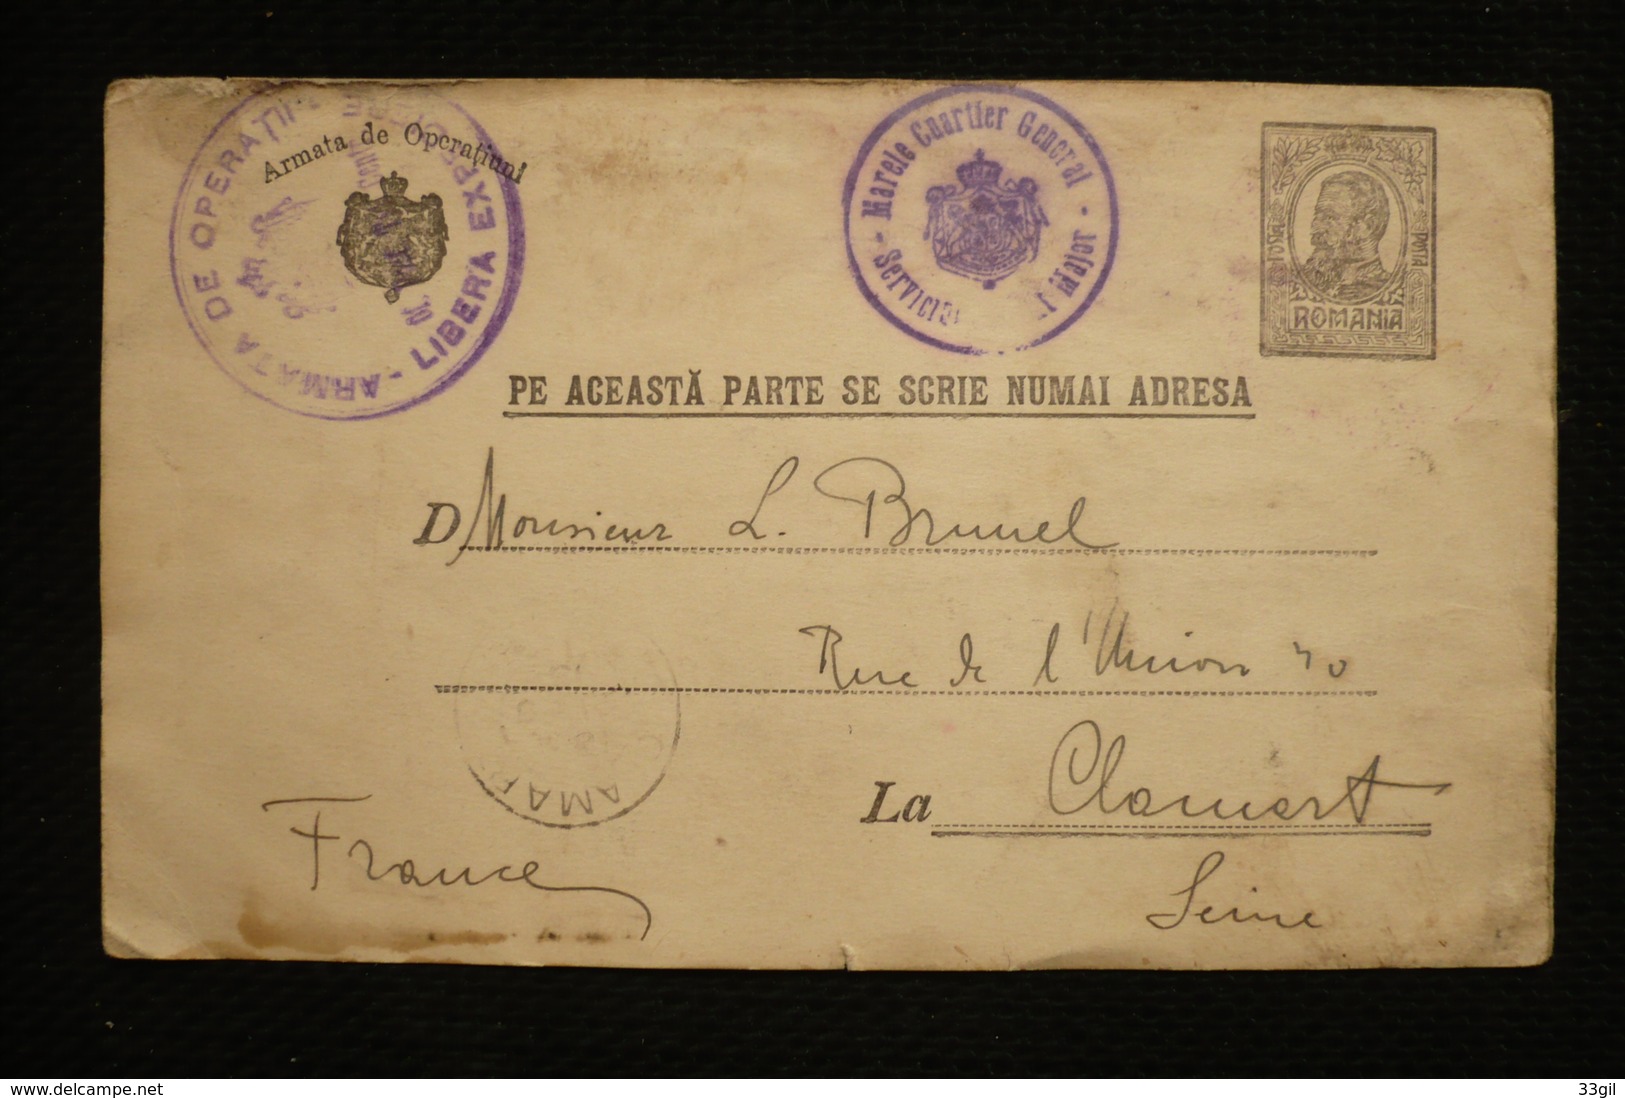 Armata de Operațiuni
ARMATA DE OPERAȚII
LIBERĂ EXP
Marele Cuartier General
Serviciul Major
POSTA
POSTA
ROMANIA
PE ACEASTĂ PARTE SE SCRIE NUMAI ADRESA
D Monsieur L. Brunel
Rue de l'Union 40
La Clamart
Seine
France
AMAR
www.delcampe.net
33gil